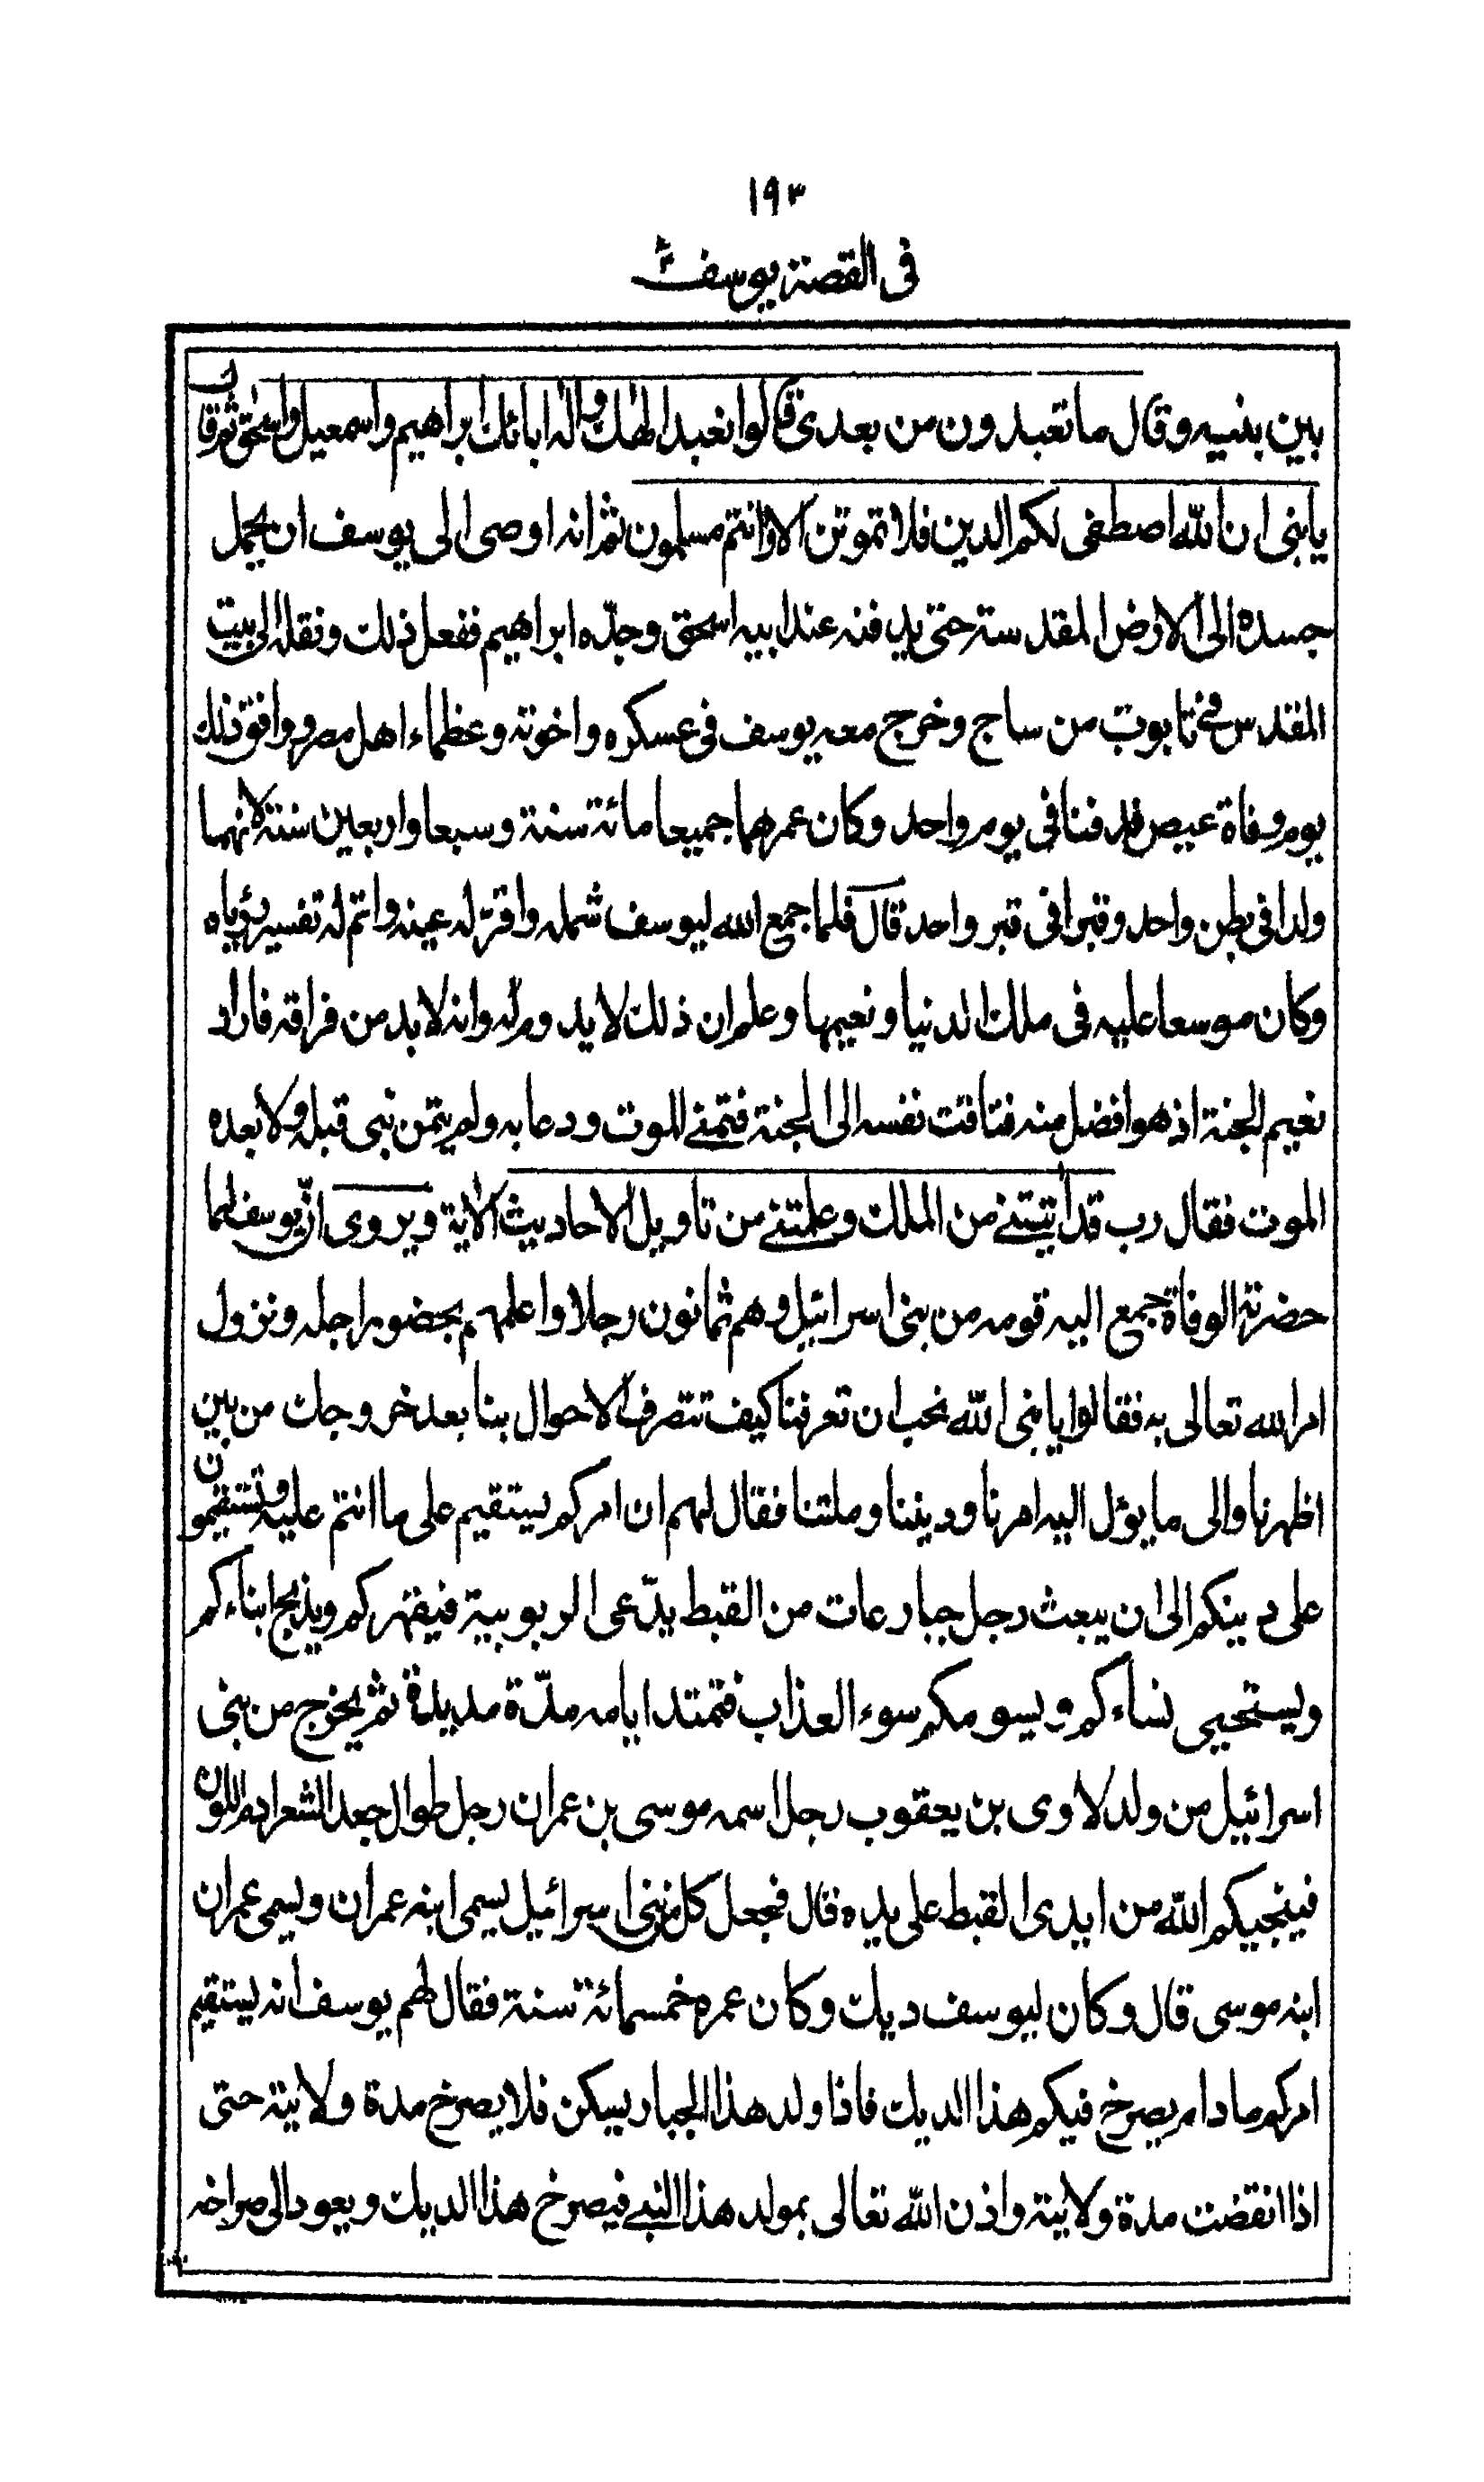 ١٩٣
فى القصة يوسف ع
بين بنيه وقال ما تعبدون من بعدى قالوا نعبد الهك واله ابائك ابراهيم واسمعيل واسحق ثم قال
يابنى ان الله اصطفى لكم الدين فلا تموتن الا وانتم مسلمون ثم انه اوصى الى يوسف ان يحمل
جسده الى الارض المقدسة حتى يدفنه عند ابيه اسحق وجدّه ابراهيم ففعل ذلك ونقله الى بيت
المقدس فى تابوت من ساج وخرج معه يوسف فى عسكره واخوته وعظماء اهل مصر ووافق ذلك
يوم وفاة عيص فدفنا فى يوم واحد وكان عمرهما جميعا مائة سنة وسبعا واربعين سنة لانهما
ولدا فى بطن واحد وقبرا فى قبر واحد قال فلما جمع الله ليوسف شمله واقرّ له عينه واتم له تفسير رؤياه
وكان موسعا عليه فى ملك الدنيا ونعيمها وعلم ان ذلك لا يدوم له وانه لا بد من فراقه فاراد
نعيم الجنة اذ هو افضل منه فتاقت نفسه الى الجنة فتمنى الموت ودعا به ولم يتمن نبى قبله ولا بعده
الموت فقال رب قد اتيتنى من الملك وعلمتنى من تاويل الاحاديث الاية ويروى انّ يوسف لما
حضرته الوفاة جمع اليه قومه من بنى اسرائيل وهم ثمانون رجلا واعلمهم بحضور اجله ونزول
امر الله تعالى به فقالوا يا نبى الله نحب ان تعرفنا كيف تتصرف الاحوال بنا بعد خروجك من بين
اظهرنا والى ما يؤل اليه امرنا وديننا وملتنا فقال لهم ان امركم يستقيم على ما انتم عليه وتستقيمون
على دينكم الى ان يبعث رجل جبار عات من القبط يدّعى الربوبية فيقهركم ويذبح ابناءكم
ويستحيى نساءكم ويسومكم سوء العذاب فتمتد ايامه مدّة مديدة ثم يخرج من بنى
اسرائيل من ولد لاوى بن يعقوب رجل اسمه موسى بن عمران رجل طوال جعد الشعر ادم اللون
فينجيكم الله من ايدى القبط على يده قال فجعل كل من بنى اسرائيل يسمى ابنه عمران ويسمى عمران
ابنه موسى قال وكان ليوسف ديك وكان عمره خمسمائة سنة فقال لهم يوسف انه يستقيم
امركم ما دام يصرخ فيكم هذا الديك فاذا ولد هذا الجبار يسكن فلا يصرخ مدة ولايته حتى
اذا انقضت مدة ولايته واذن الله تعالى بمولد هذا النبى فيصرخ هذا الديك ويعود الى صراخه